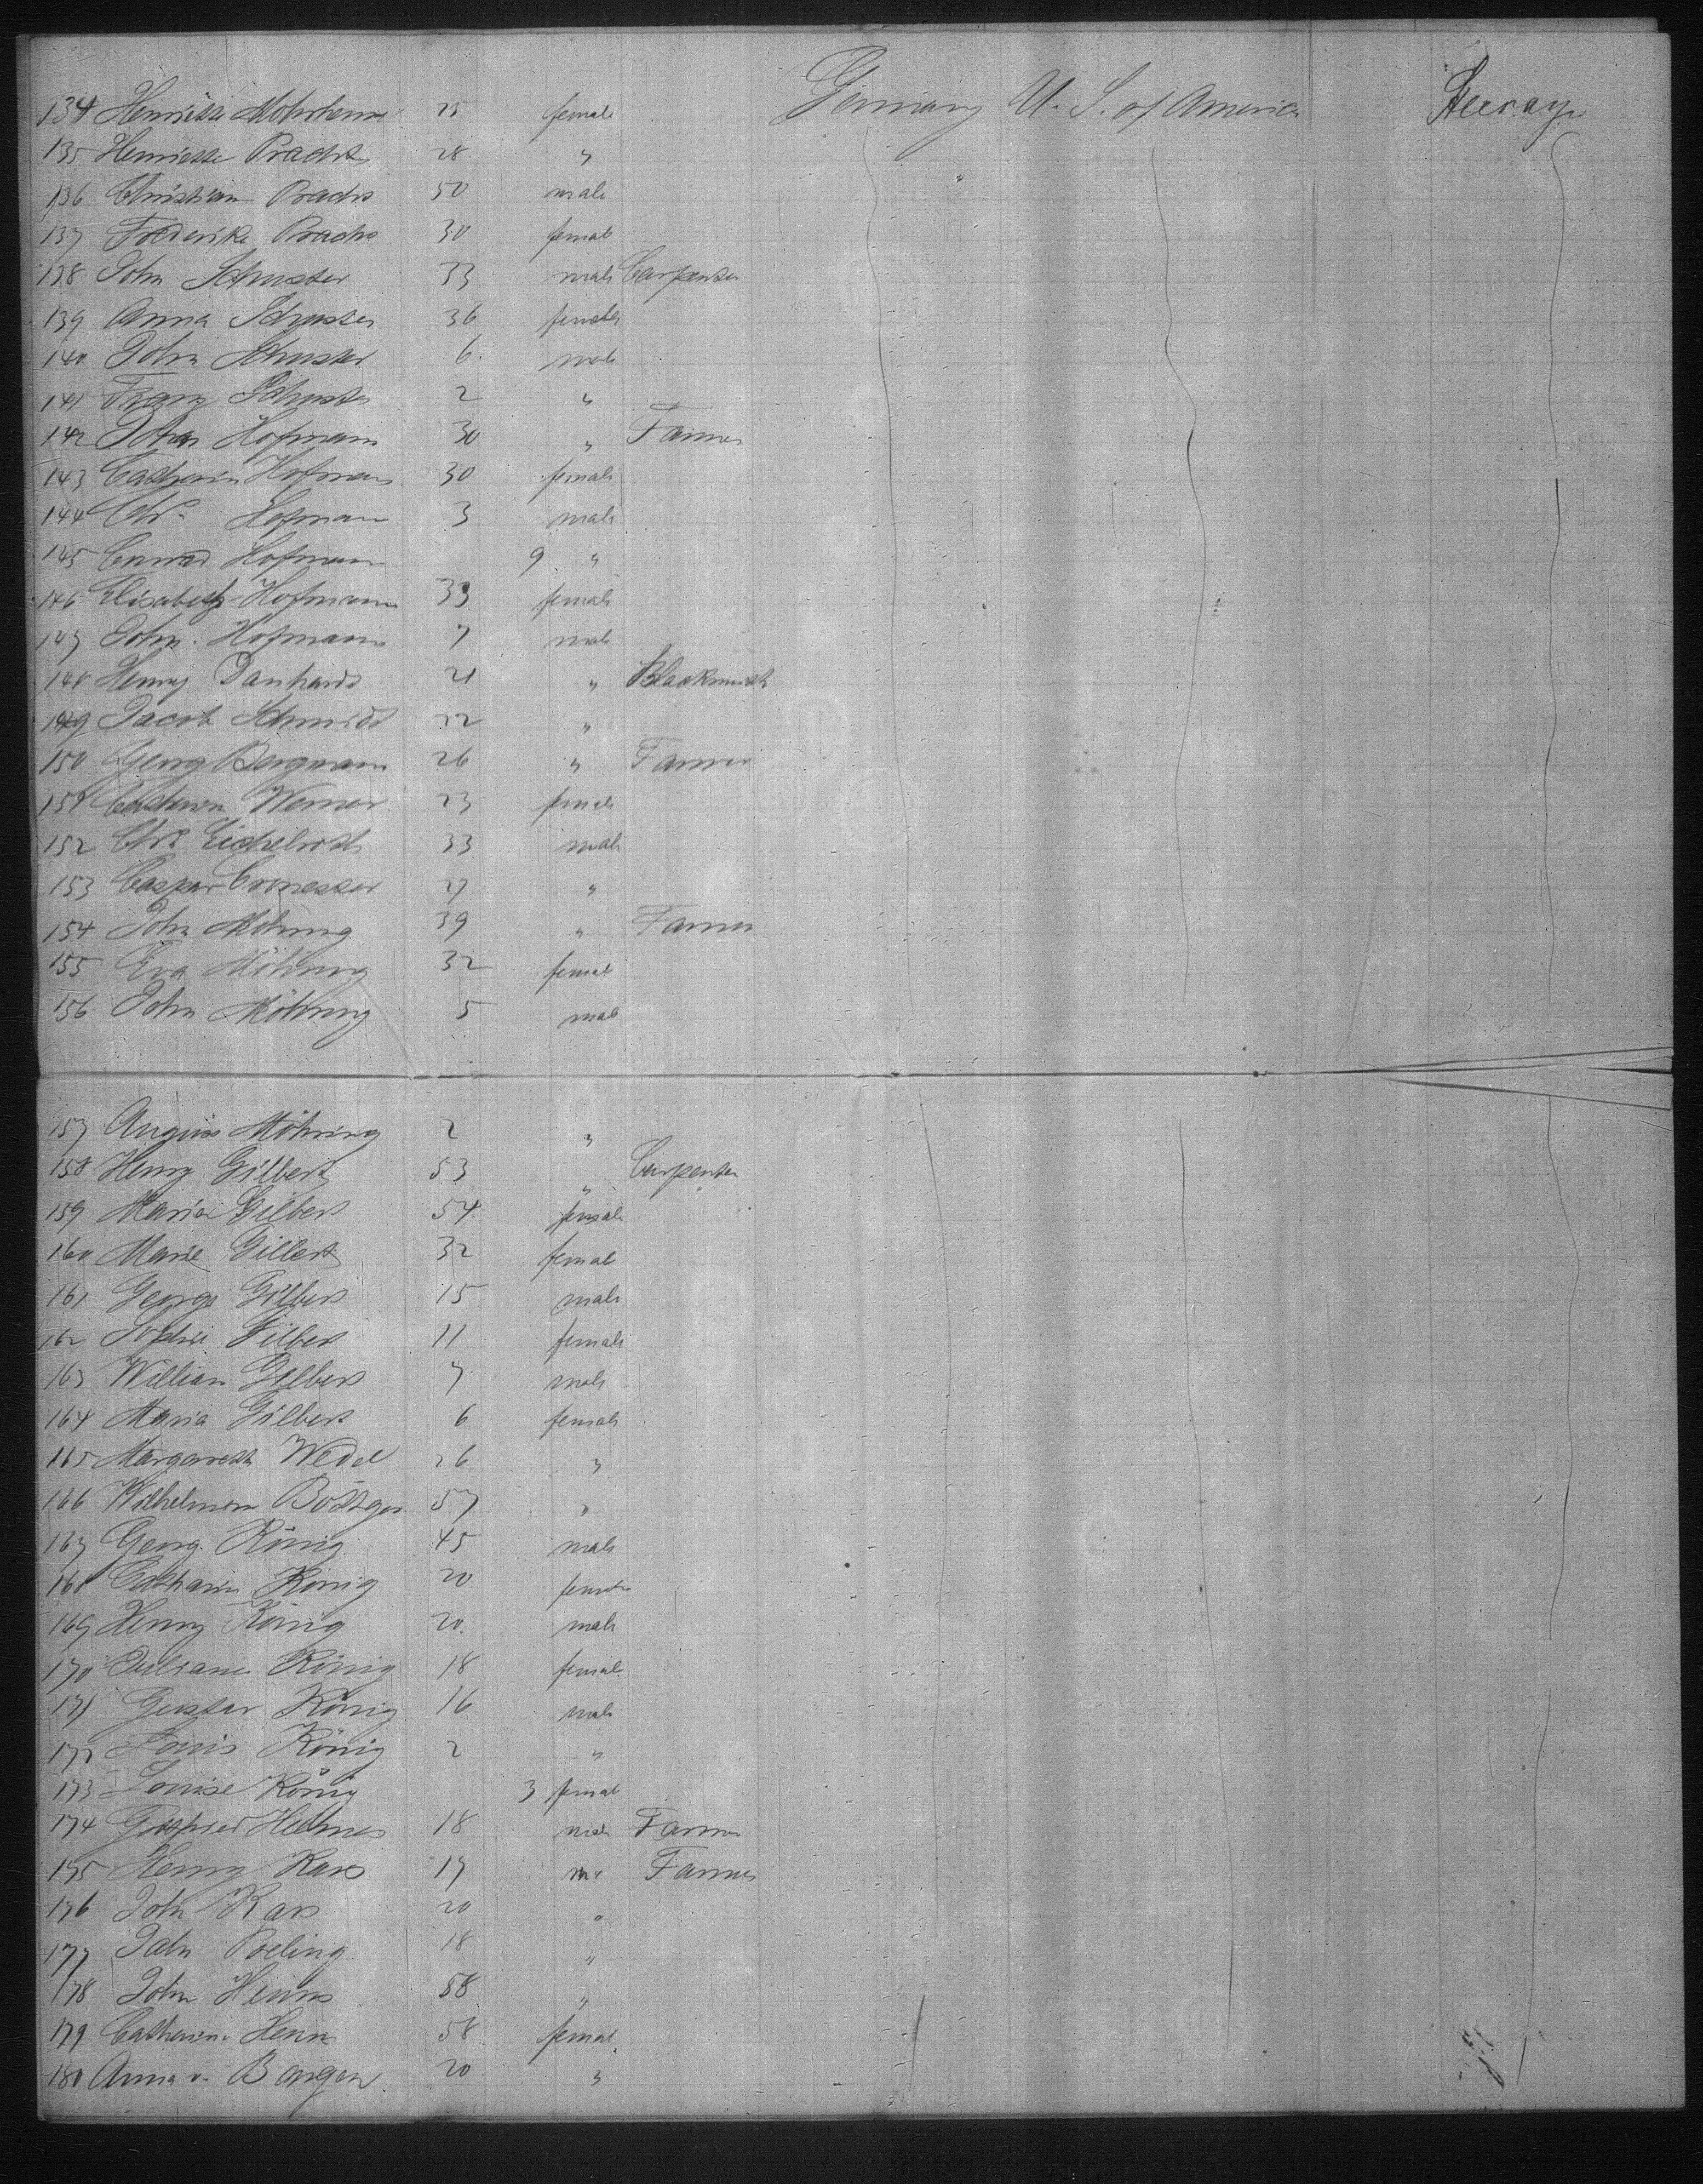 134 Henrietta 25 female Germany U. S. of America Steerage
135 Henriette Pracht 28 "
136 Christian Pracht 50 male
137 Frederike Pracht 30 female
138 John Schuster 33 male Carpenter
139 Anna Schuster 36 female
140 John Schuster 6 male
141 Franz Schuster 2 "
142 John Hofmann 30 " Farmer
143 Catherin Hofmann 30 female
144 Chr. Hofmann 3 male
145 Conrad Hofmann 9 "
146 Elisabeth Hofmann 33 female
147 John Hofmann 7 male
148 Henry Danhardt 21 " Blacksmith
149 Jacob Schmidt 22 "
150 Georg Bergmann 26 " Farmer
151 Catherin Werner 23 female
152 Chr. 33 male
153 Caspar 27 "
154 John Möhring 39 " Farmer
155 Eva Möhring 32 female
156 John Möhring 5 male
157 August Möhring 2 "
158 Henry Gilbert 53 " Carpenter
159 Maria Gilbert 54 female
160 Marie Gilbert 32 female
161 George Gilbert 15 male
162 Sophie Gilbert 11 female
163 William Gilbert 7 male
164 Maria Gilbert 6 female
165 Margareth Wedel 26 "
166 Wilhelmine Böttger 57 "
167 Georg König 45 male
168 Catharin König 20 female
169 Henry König 20 male
170 Juliane König 18 female
171 Gustav König 16 male
172 Louis König 2 "
173 Louise König 3 female
174 Gottfried Helmes 18 male Farmer
175 Henry 17 Farmer
176 John 20 "
177 John Poeling 18 "
178 John 58 "
179 Catherine Henn 58 female
180 Anna v. Bargen 20 "